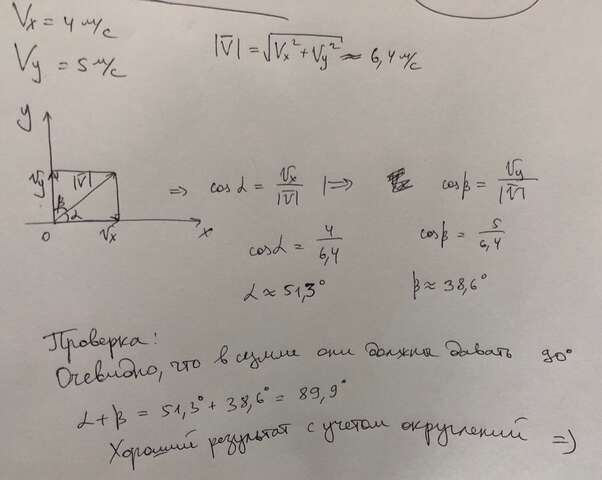 Vx = 4 м/с
|V̅| = √(Vx² + Vy²) ≈ 6,4 м/с
Vy = 5 м/с
y
Vy |V̅|
β α
0 Vx x
=> cos α = Vx/|V̅| |=> cos β = Vy/|V̅|
cos α = 4/6,4 cos β = 5/6,4
α ≈ 51,3° β ≈ 38,6°
Проверка:
Очевидно, что в сумме они должны давать 90°
α + β = 51,3° + 38,6° = 89,9°
Хороший результат с учетом округлений =)